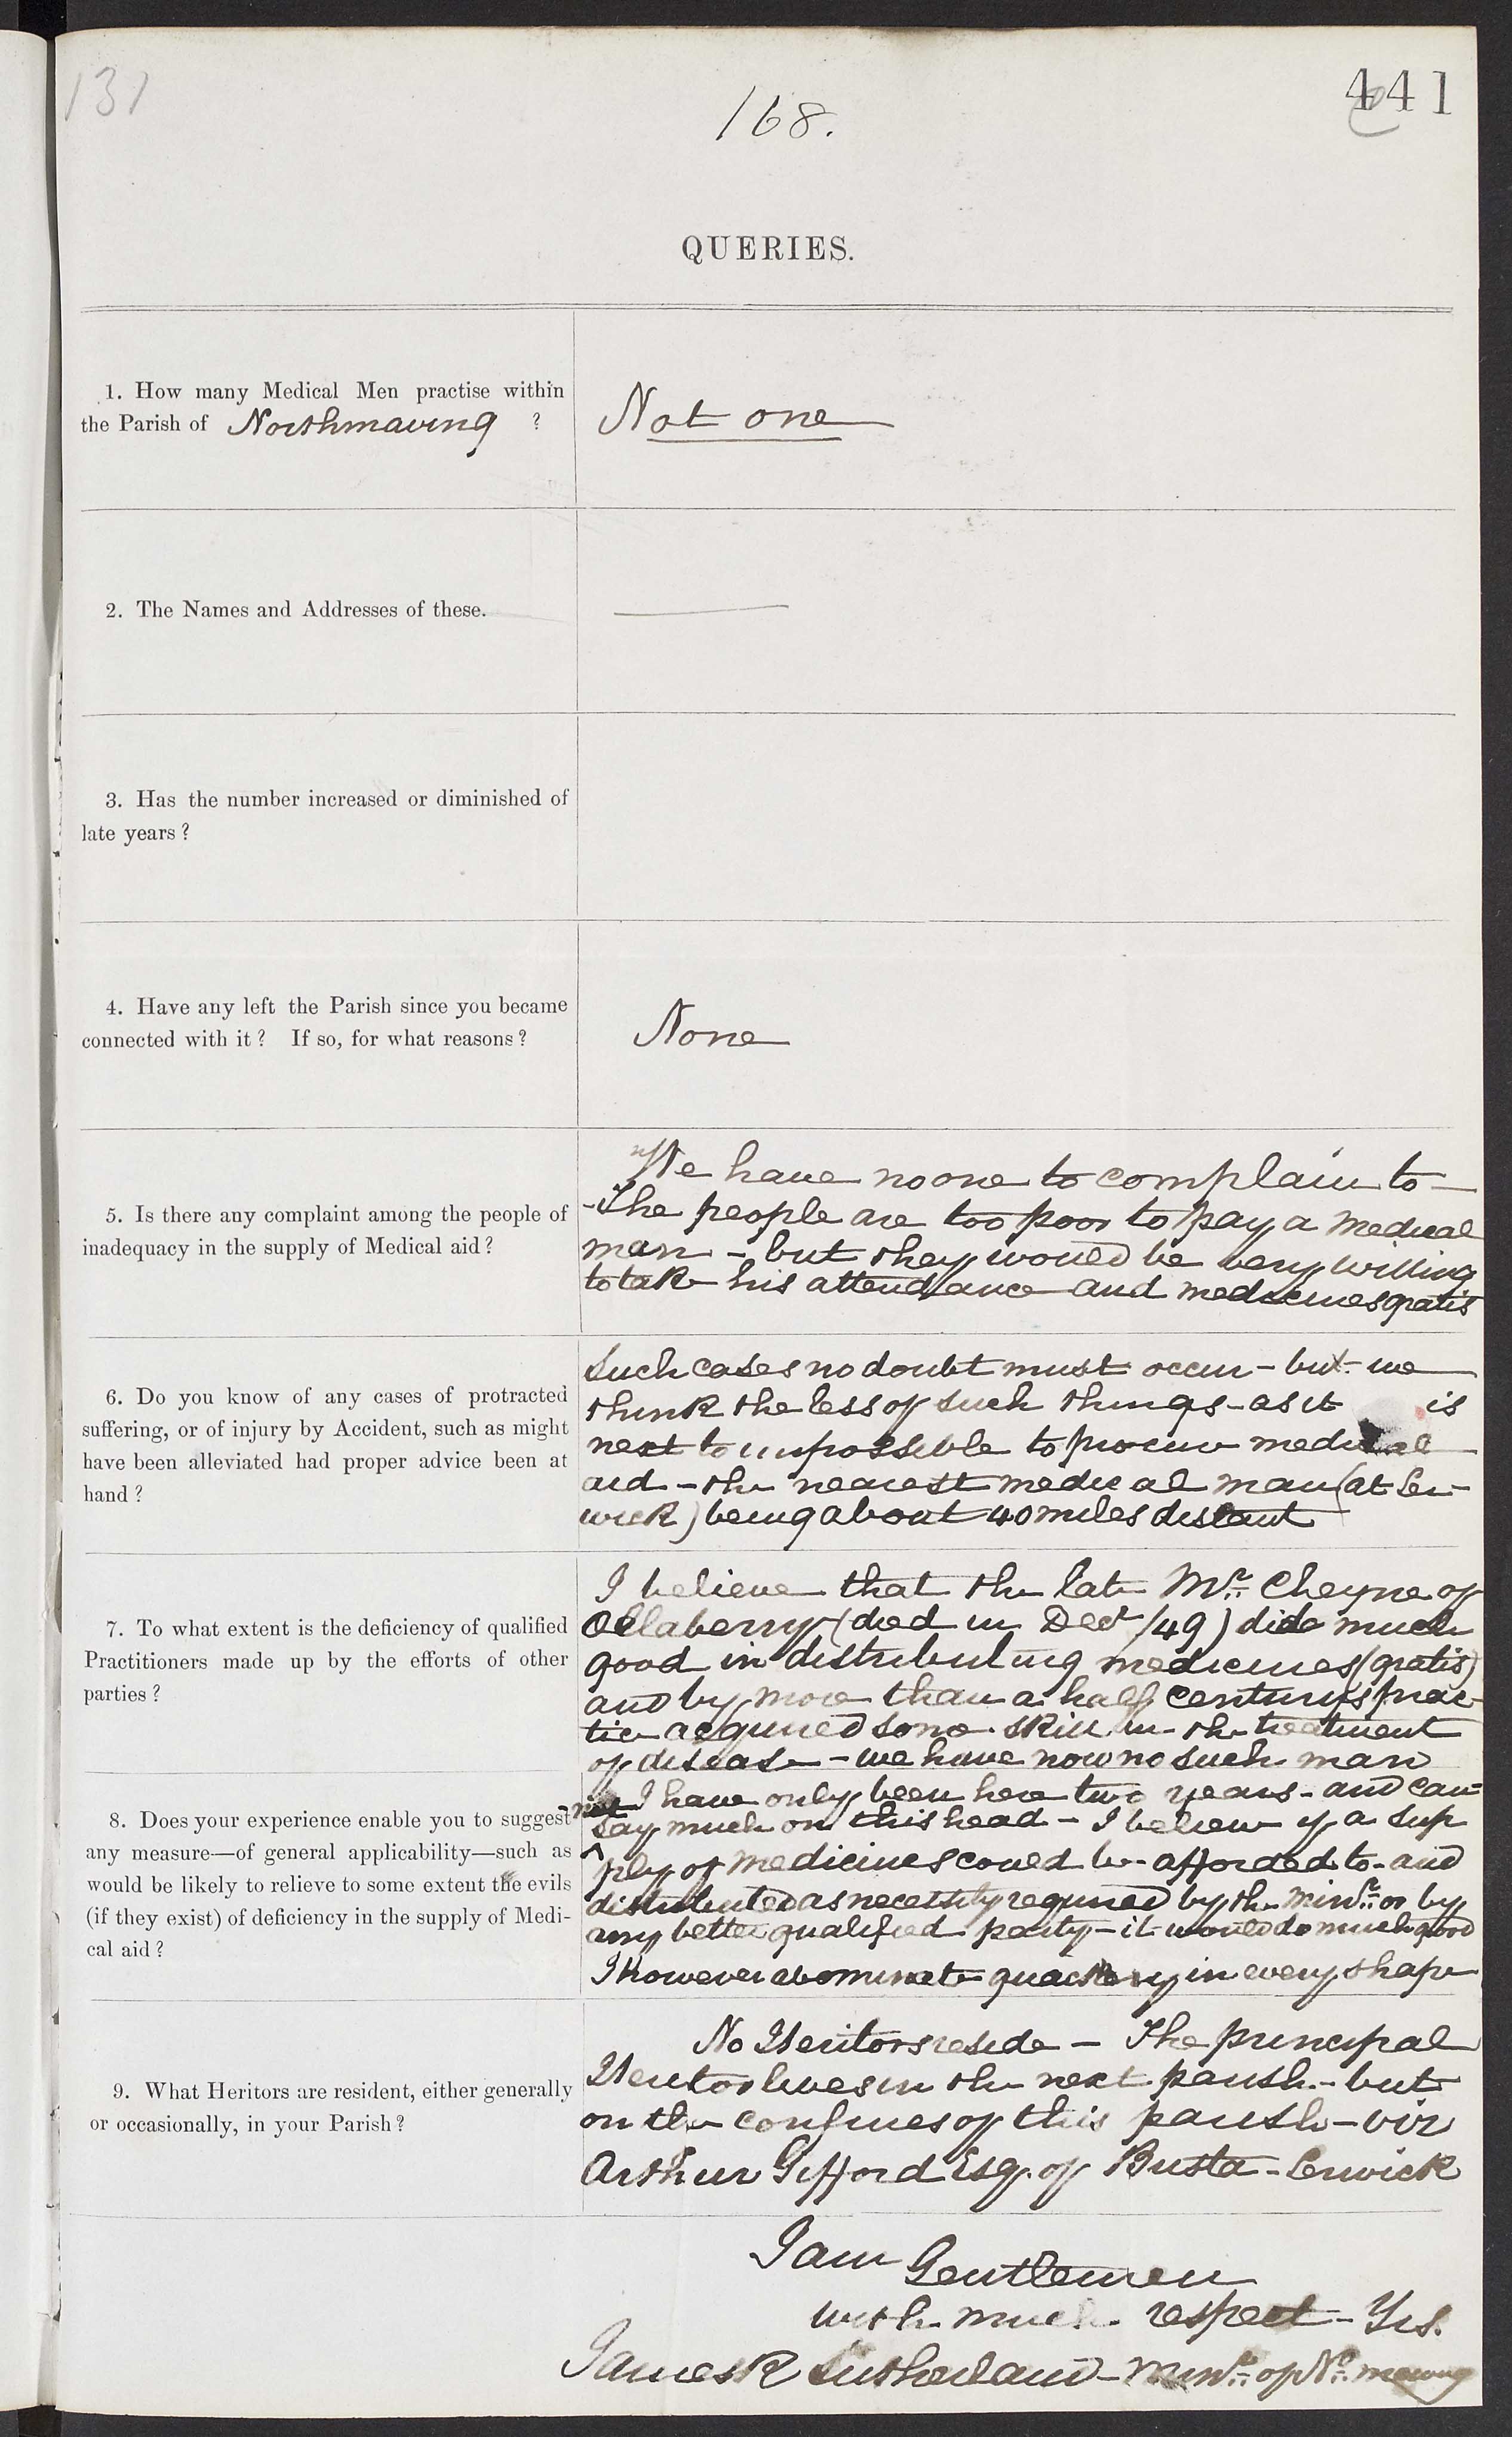 131
168.
441
QUERIES.
1. How many Medical Men practise within
the Parish of Northmaving ?
Not one
2. The Names and Addresses of these.
3. Has the number increased or diminished of
late years ?
4. Have any left the Parish since you became
connected with it ? If so, for what reasons ?
None
5. Is there any complaint among the people of
inadequacy in the supply of Medical aid ?
We have no one to complain to -
- The people are too poor to pay a medical
man - but they would be very willing
to take his attendance and medicines gratis
6. Do you know of any cases of protracted
suffering, or of injury by Accident, such as might
have been alleviated had proper advice been at
hand ?
Such cases no doubt must occur - but - we
think the less of such things - as it is
next to impossible to procure medical
aid - the nearest medical man (at Ler-
wick) being about 40 miles distant
7. To what extent is the deficiency of qualified
Practitioners made up by the efforts of other
parties ?
I believe that the late Mr. Cheyne of
Ollaberry (died in Decr /49) did much
good in distributing medicines (gratis)
and by more than a half century's prac-
tice acquired some skill in the treatment
of disease - we have now no such man
8. Does your experience enable you to suggest
any measure—of general applicability—such as
would be likely to relieve to some extent the evils
(if they exist) of deficiency in the supply of Medi-
cal aid ?
I have only been here two years - and can-
not say much on this head - I believe if a sup
ply of medicines could be afforded to - and
distributed as necessity required by the Minr. or by
any better qualified party - it would do much good
I however abominate quackery in every shape
9. What Heritors are resident, either generally
or occasionally, in your Parish ?
No Heritors reside - The principal
Heritor lives in the next parish - but
on the confines of this parish - viz
Arthur Gifford Esq. of Busta - Lerwick
I am Gentlemen
with much respect - Yrs.
James R Sutherland - Minr. of No. maving